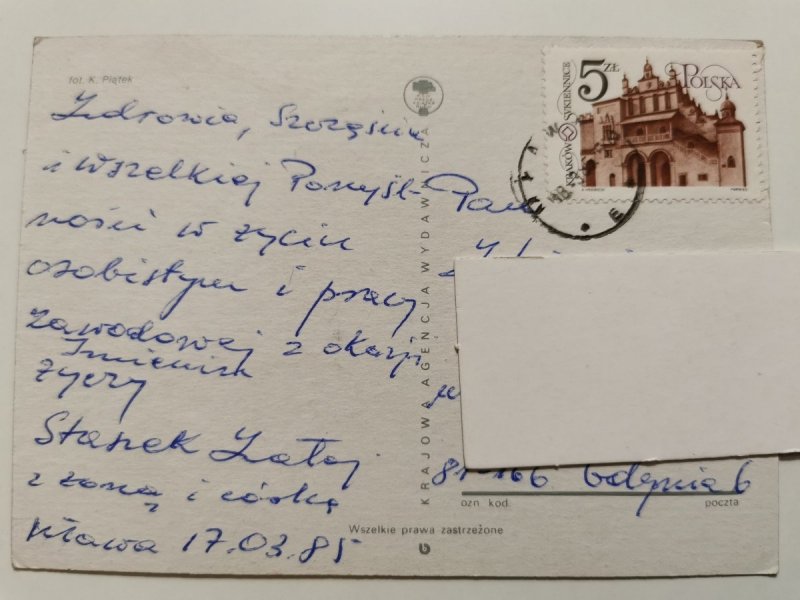 fot. K. Piątek
Zdrowia, Szczęścia
i wszelkiej Pomyśl-
ności w życiu
osobistym i pracy
zawodowej z okazji
Imienin
życzy
Stasek
z żoną i córką
Iława 17.03.85
KRAJOWA AGENCJA WYDAWICZA
Wszelkie prawa zastrzeżone
5 ZŁ
POLSKA
KRAKÓW SUKIENNICE
Pan
81-166 Gdynia 6
ozn kod.
poczta